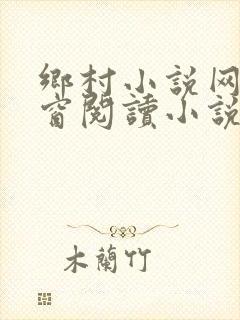 鄉村小说网
窗閱讀小説
木蘭竹